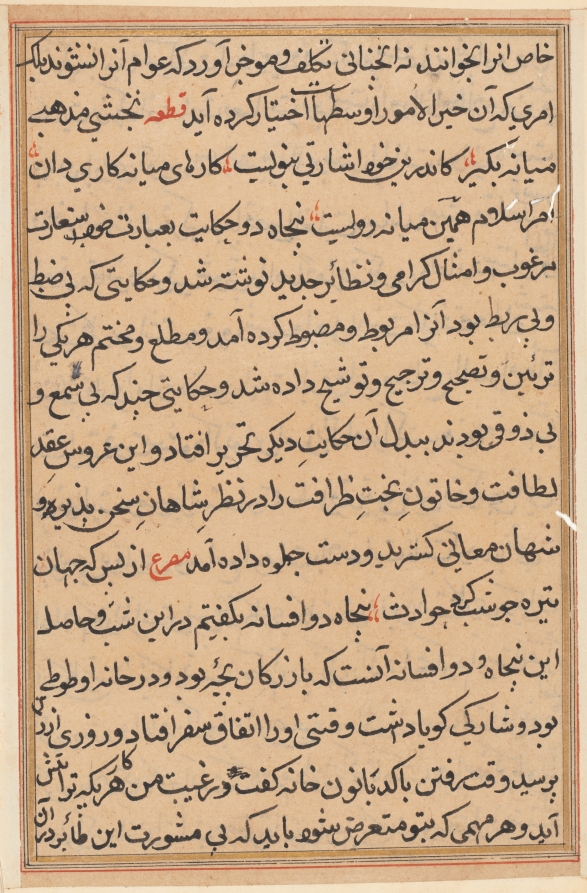 خاص انرا بخوانند نه انچنانی بتکلف و موخر آورد که عوام آنرا نشنوند بلکه
امری که آن خیر الامور اوسطها اختیار کرده آید قطعه نخشبی مذهبے
میانه بکیر کاندرین خود اشارتی نبویست کارهای میانه کاری دان
امر اسلام همین میانه رویست پنجاه دو حکایت بعبارت خوب استعارت
مرغوب و امثال کرامی و نظائر جدید نوشته شد و حکایتی که بی ضبط
و بی ربط بود آنرا مربوط و مضبوط کرده آمد و مطلع و مختم هر یکی را
تزئین و تصحیح و ترجیح و توشیح داده شد و حکایتی چند که بی سمع و
بی ذوقی بودند ببدل آن حکایت دیکر تحریر افتاد و این عروس عقد
لطافت و خاتون بخت ظرافت را در نظر شاهان سخن پذیر و
شهان معانی کستر ید و دست جلوه داده آمد مصرع از بس که جهان
تیره جو شب کرد حوادث پنجاه دو افسانه بکفتیم در این شب و حاصل
این پنجاه و دو افسانه آنست که بازرکان بچه بود و در خانه او طوطے
بود و شارکی کویا داشت وقتی او را اتفاق سفر افتاد و روزی
پرسید وقت رفتن با کدبانون خانه کفت در غیبت من هر کار که ترا پیش
آید و هر مهمی که بتو متعرض شود باید که بی مشورت این طائر در آن